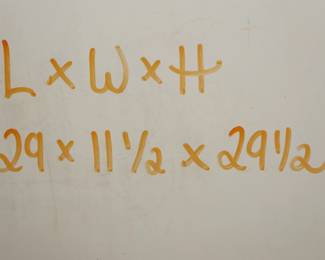 L x W x H
29 x 11 1/2 x 29 1/2